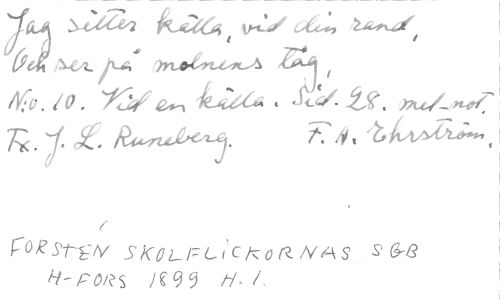 Jag sitter källa, vid din rand,
Och ser på molnens tåg,
N:o. 10. Vid en källa. Sid. 28. med not.
Tx. J. L. Runeberg. F. A. Ehrström.
FORSTÉN SKOLFLICKORNAS SGB
H-FORS 1899 H. 1.